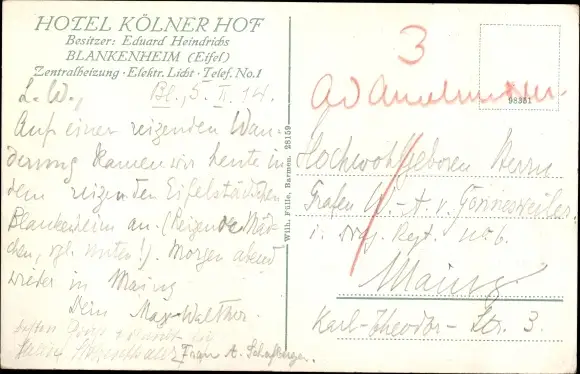 HOTEL KÖLNER HOF
Besitzer: Eduard Heindrichs
BLANKENHEIM (Eifel)
Zentralheizung · Elektr. Licht · Telef. No. 1
L. W., Bl., 5. II. 14.
Auf einer reizenden Wan-
derung kamen wir heute in
dem reizenden Eifelstädtchen
Blankenheim an. (Reizende Mäd-
chen, vgl. unten!). Morgen abend
wieder in Mainz
Dein Max-Walther.
Frau A.
Wilh. Fülle, Barmen. 28159
3
98351
Hochwohlgeboren Herrn
Grafen v.
i. Drag. Regt. No 6.
Mainz
Karl-Theodor-Str. 3.